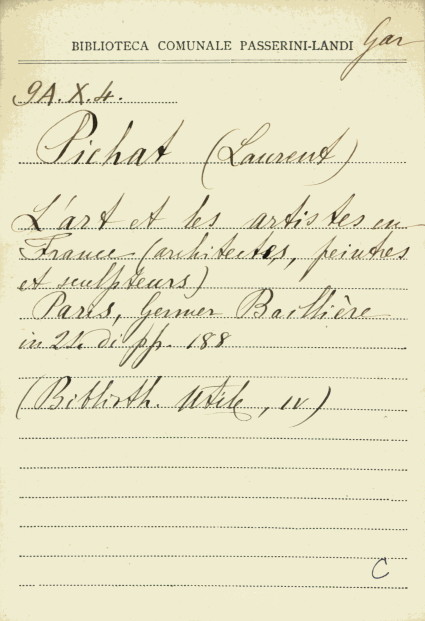 BIBLIOTECA COMUNALE PASSERINI-LANDI Gar
9A. X. 4.
Pichat (Laurent)
L'art et les artistes en
France (architectes, peintres
et sculpteurs)
Paris, Germer Baillière
in 24. di pp. 188
(Biblioth. Utile, IV)
C